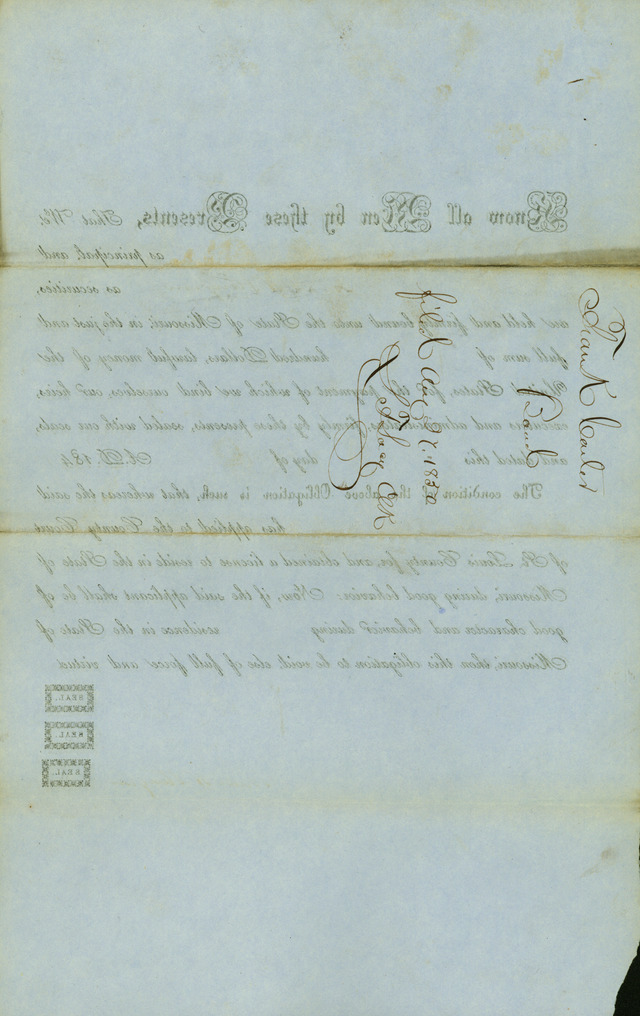 Know all Men by these Presents, That We,
as principal, and
as securities,
are held and firmly bound unto the State of Missouri, in the just and
full sum of hundred Dollars, lawful money of the
United States, for the payment of which we bind ourselves, our heirs,
executors and administrators, firmly by these presents, sealed with our seals,
and dated this day of A. D. 184
The condition of the above Obligation is such, that whereas the said
has applied to the County Court
of St. Louis County for, and obtained a license to reside in the State of
Missouri, during good behavior: Now, if the said applicant shall be of
good character and behavior during residence in the State of
Missouri, then this obligation to be void, else of full force and virtue
SEAL.
SEAL.
SEAL.
Frank
Bond
filed Aug 27. 1850
Clk